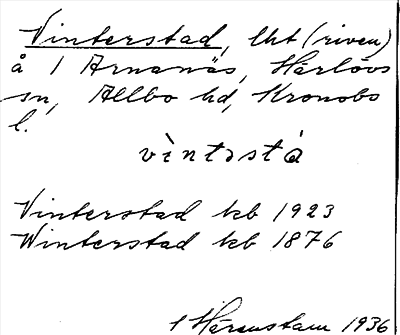 Vinterstad, lht (riven)
å 1 Arnanäs, Härlövs
sn, Allbo hd, Kronobs
l.
vìntəsta
Vinterstad kb 1923
Winterstad kb 1876
1936